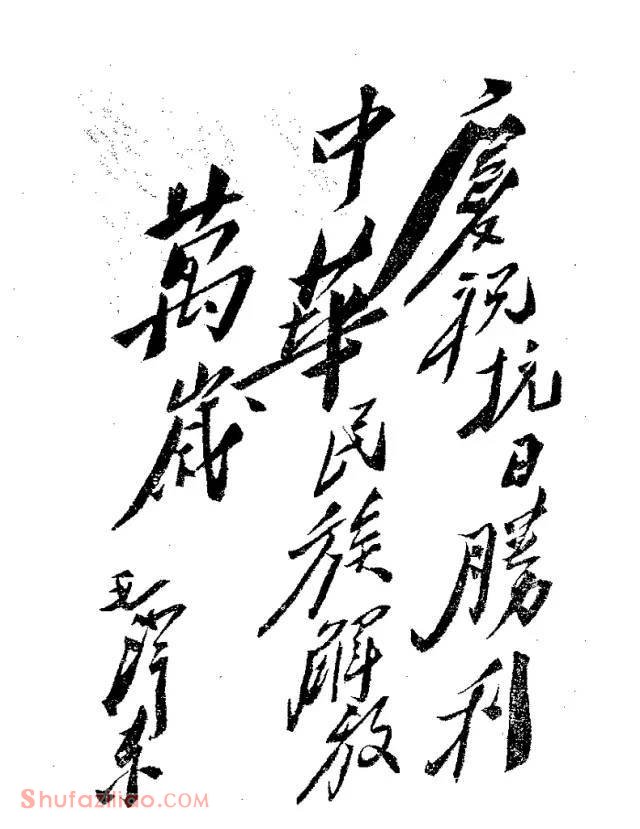 慶祝抗日勝利
中華民族解放
萬歲
毛澤东
Shufaziliao.COM